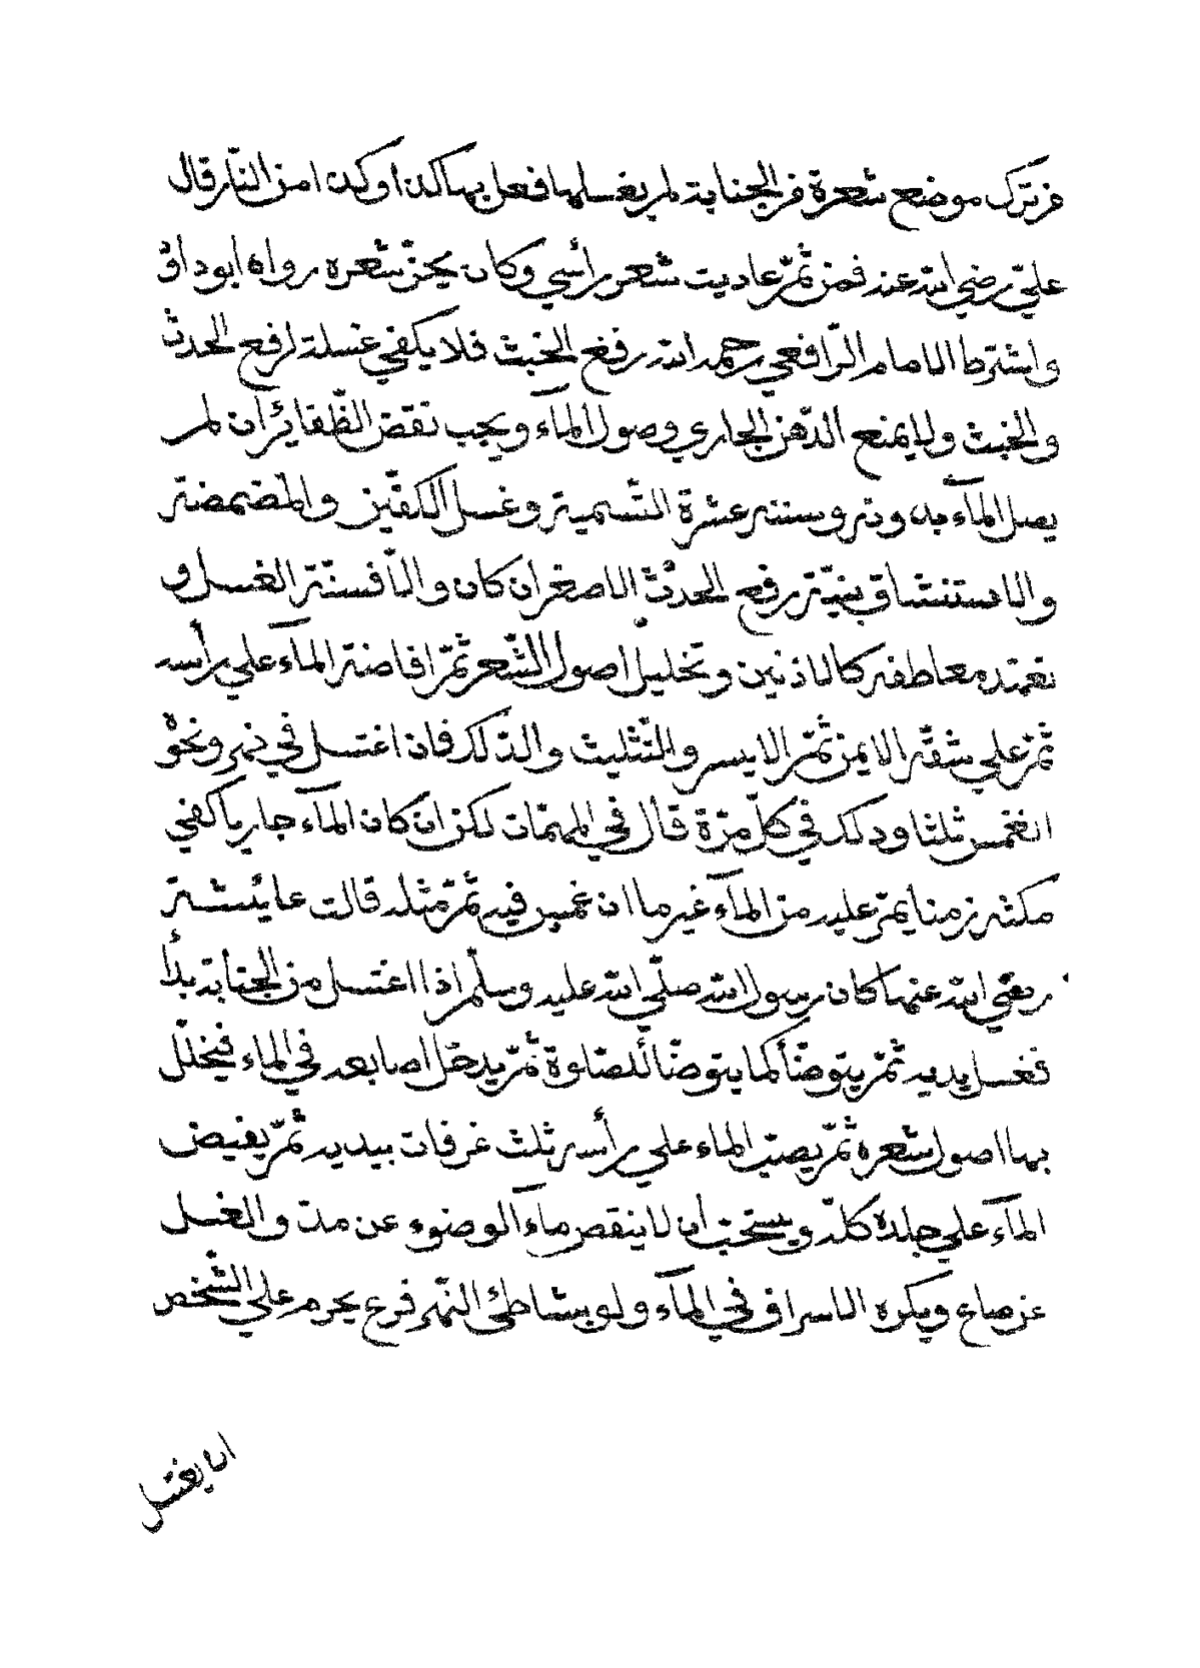 من ترك موضع شعرة من الجنابة لم يغسلها فعل بها كذا وكذا من النّار قال
عليّ رضي الله عنه فمن ثمّ عاديت شعر رأسي وكان يجزّ شعره رواه ابوداود
واشترط الامام الرّافعي رحمه الله رفع الخبث فلا يكفي غسلة لرفع الحدث
والخبث ولا يمنع الدّهن الجاري وصول المآء ويجب نقض الظّفائر ان لم
يصل المآء بدونه وسننه عشرة التّسمية وغسل الكفّين والمضمضة
والاستنشاق بنيّة رفع الحدث الاصغر ان كان والّا فسنّة الغسل و
تعهّده معاطفه كالاذنين وتخليل اصول الشّعر ثمّ افاضة المآء علي رأسه
ثمّ علي شقّه الايمن ثمّ الايسر والتّثليث والدّلك فان اغتسل في نهر ونحوه
انغمس ثلثا ودلك في كلّ مرّة قال في المهمّات لكن ان كان المآء جاريا كفي
مكثه زمنا يمرّ عليه من المآء غير ما انغمس فيه ثمّ مثله قالت عائشة
رضي الله عنها كان رسول الله صلّي الله عليه وسلّم اذا اغتسل من الجنابة بدأ
فغسل يديه ثمّ يتوضّأ كما يتوضّأ للصّلوة ثمّ يدخل اصابعه في الماء فيخلّل
بها اصول شعره ثمّ يصبّ الماء علي رأسه ثلث غرفات بيديه ثمّ يفيض
المآء علي جلده كلّه ويستحبّ ان لا ينقص مآء الوضوء عن مدّ والغسل
عن صاع ويكره الاسراف في المآء ولو بشاطئ النّهر فرع يحرم علي الشّخص
ان يغتسل